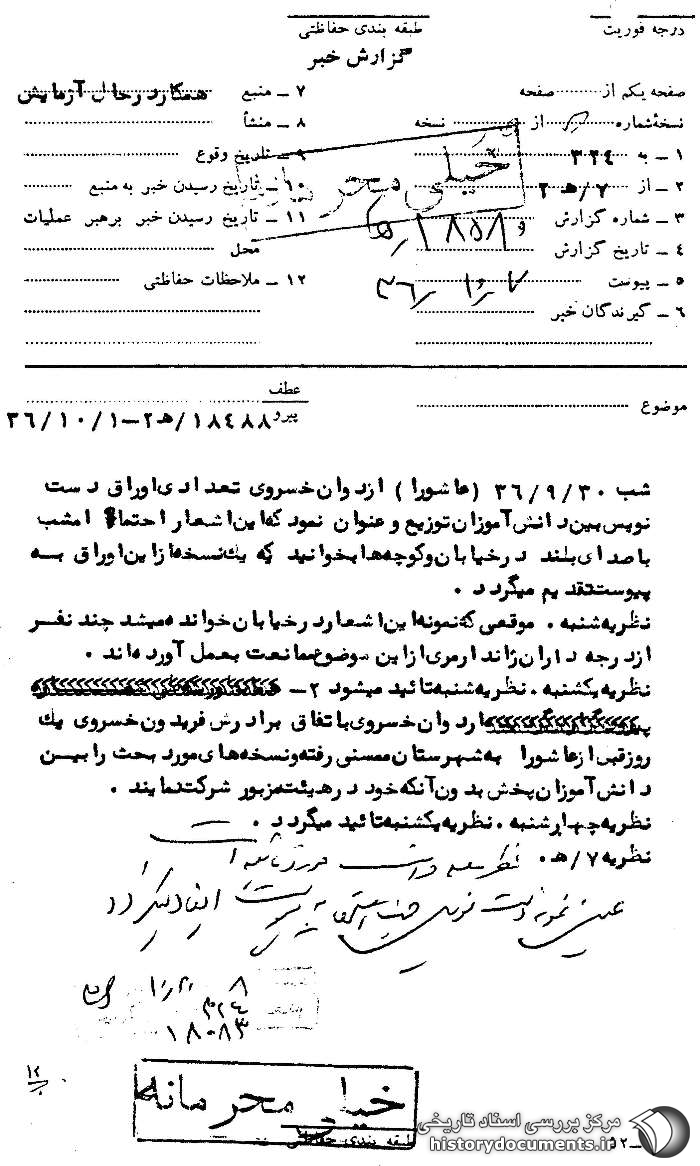 درجه فوریت
طبقه بندی حفاظتی
گزارش خبر
صفحه یکم از صفحه
نسخهٔ شماره از نسخه
۱ ـ به ۳۲۴
۲ ـ از ۷/هـ ۲
۳ ـ شماره گزارش
۴ ـ تاریخ گزارش
۵ ـ پیوست
۶ ـ گیرندگان خبر
۷ ـ منبع همکار در حال آزمایش
۸ ـ منشأ
۹ ـ تاریخ وقوع
۱۰ ـ تاریخ رسیدن خبر به منبع
۱۱ ـ تاریخ رسیدن خبر برهبر عملیات
محل
۱۲ ـ ملاحظات حفاظتی
خیلی محرمانه
موضوع
عطف
پیرو ۱۸۴۸۸/هـ۲-۳۶/۱۰/۱
شب ۳۶/۹/۳۰ (عاشورا) اردوان خسروی تعدادی اوراق دست
نویس بین دانش آموزان توزیع و عنوان نمود که این اشعار احتماً امشب
با صدای بلند در خیابان و کوچه ها بخوانید که یک نسخه از این اوراق به
پیوست تقدیم میگردد .
نظریه شنبه . موقعی که نمونه این اشعار در خیابان خوانده میشد چند نفر
از درجه داران ژاندارمری از این موضوع ممانعت بعمل آورده اند .
نظریه یکشنبه . نظریه شنبه تائید میشود ۲-
اردوان خسروی باتفاق برادرش فریدون خسروی یک
روز قبل از عاشورا به شهرستان ممسنی رفته و نسخه های مورد بحث را بین
دانش آموزان پخش بدون آنکه خود در هیئت مزبور شرکت نمایند .
نظریه چهارشنبه . نظریه یکشنبه تائید میگردد .
نظریه ۷/هـ .
عین نمونه دست نویس به پیوست ایفاد میگردد
۱۸۰۸۳
۱۲
خیلی محرمانه
طبقه بندی حفاظتی
ـ۵۲
مرکز بررسی اسناد تاریخی
historydocuments.ir